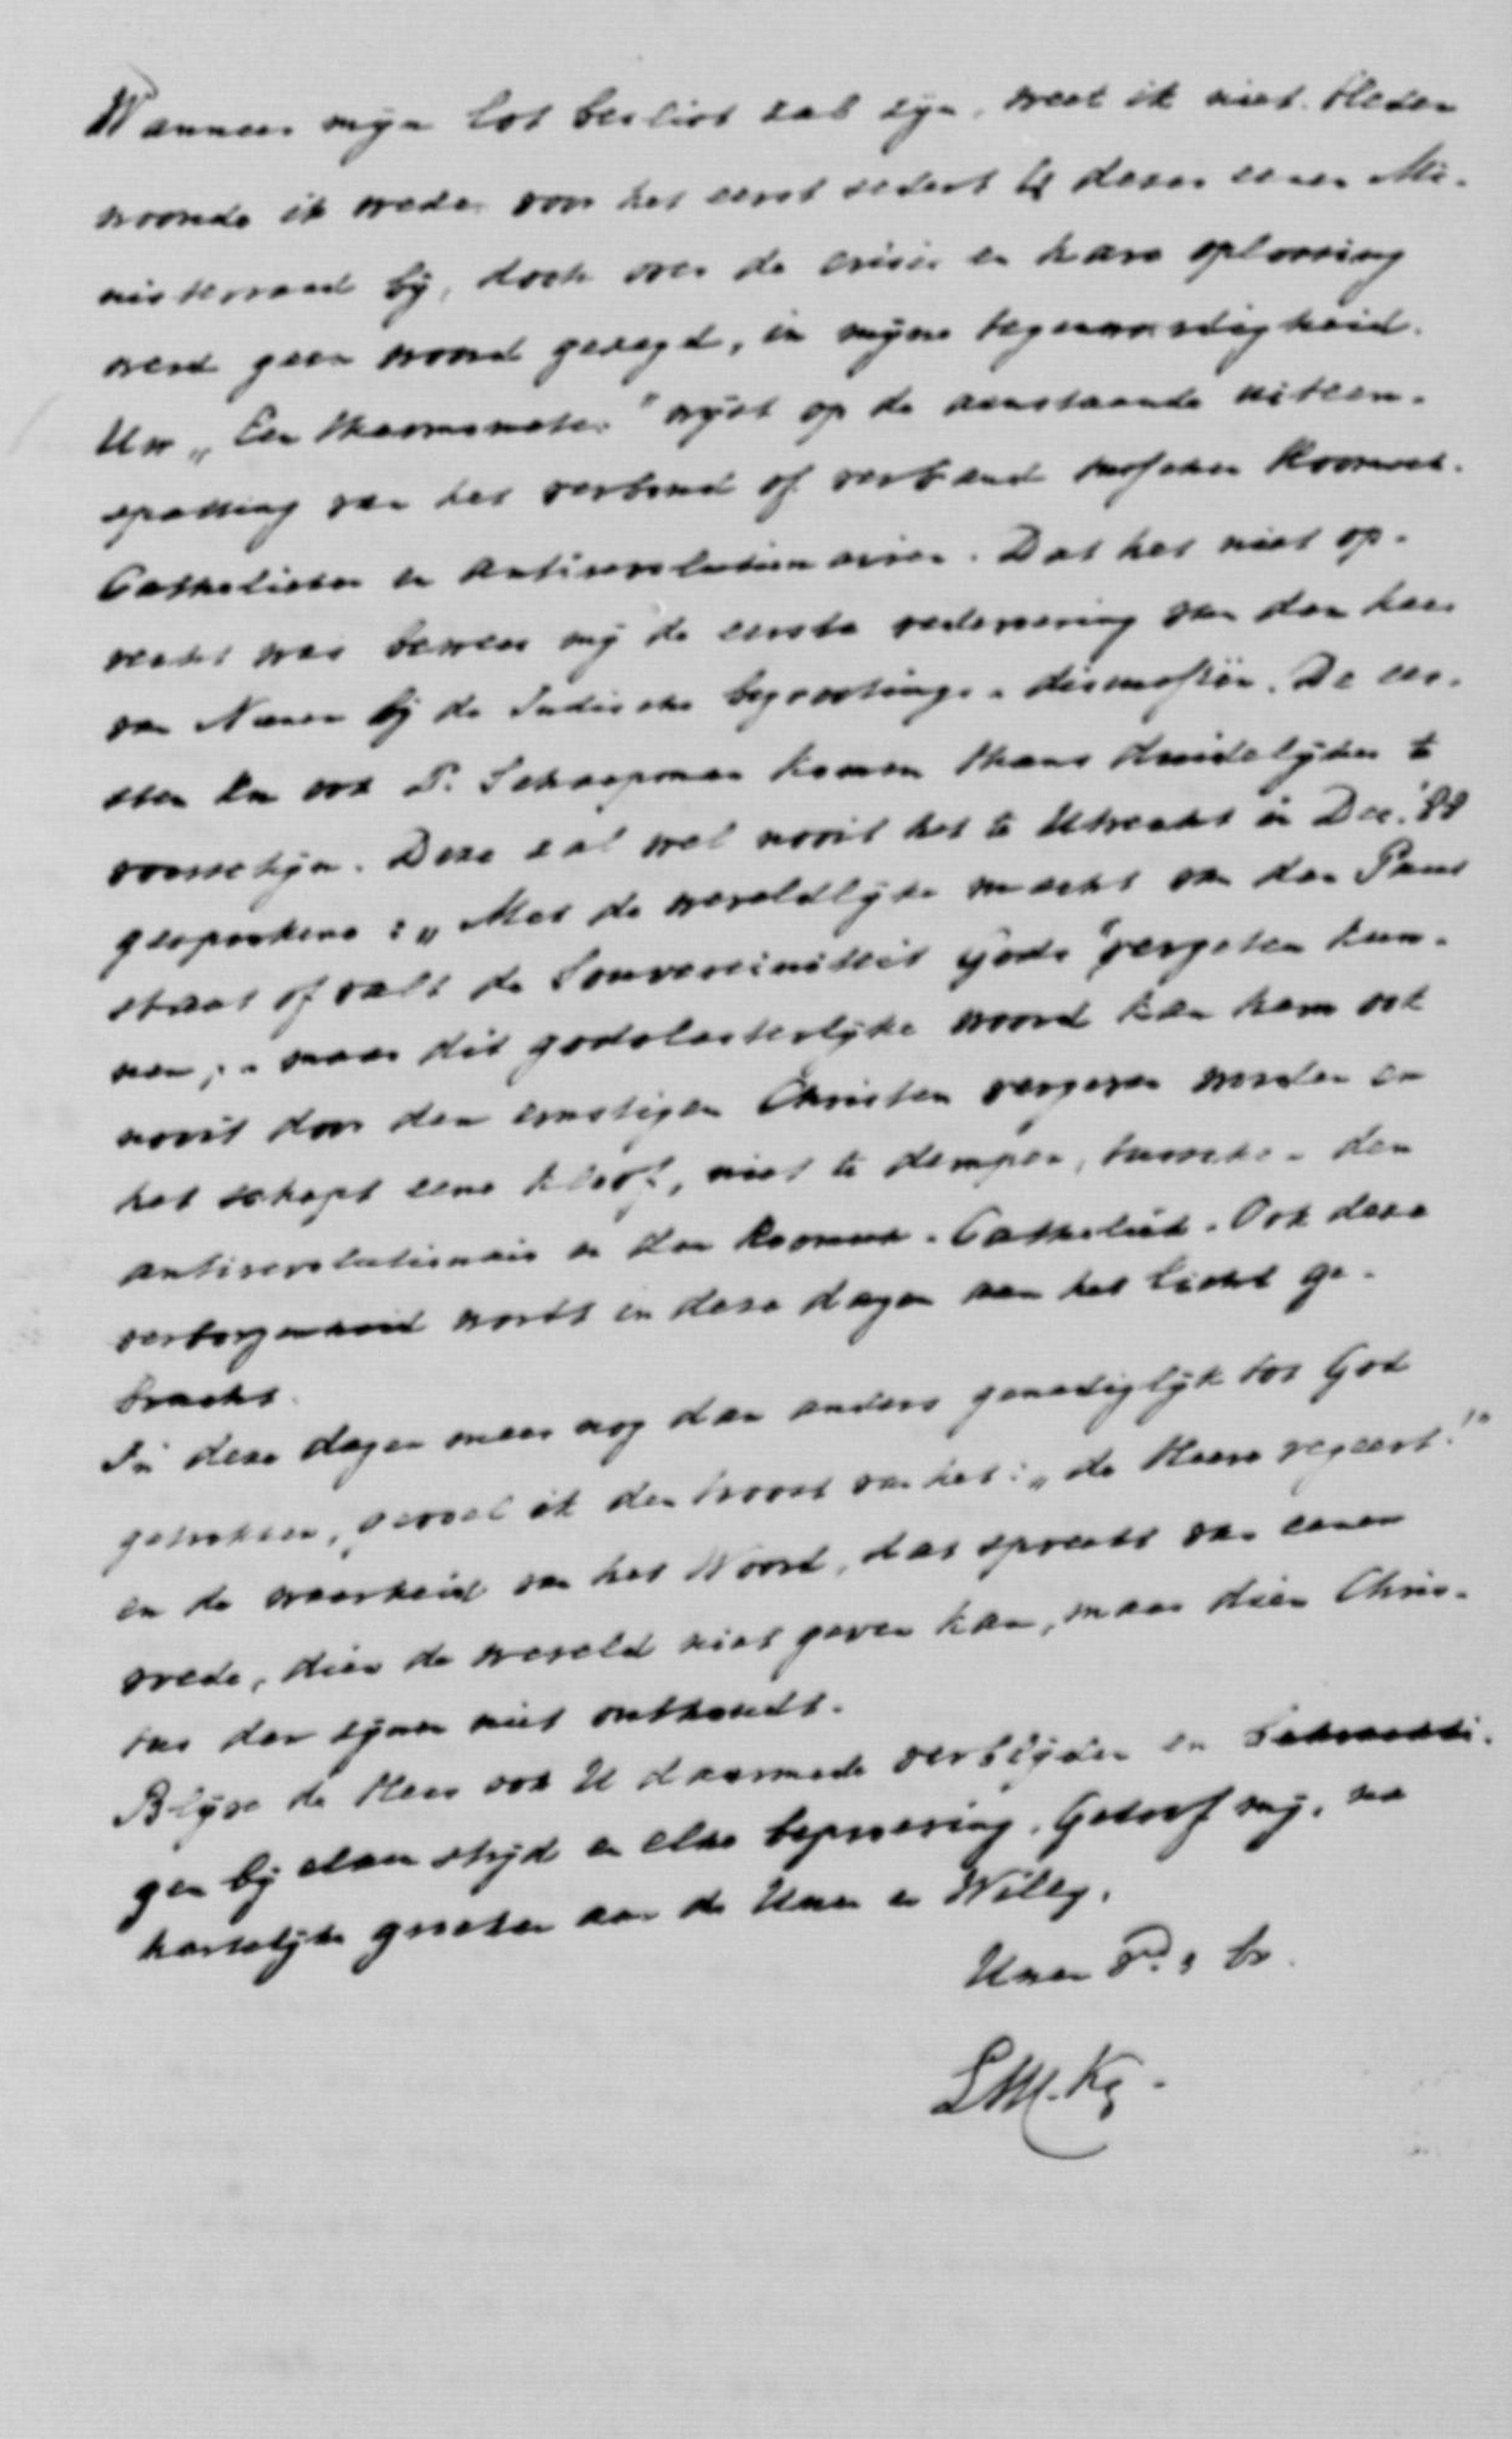 Wanneer mijn lot beslist zal zijn, weet ik niet. Heden
woonde ik weder voor het eerst sedert 14 dezer eenen Mi-
nisterraad bij, doch over de crisis en hare oplossing
werd geen woord gezegd, in mijne tegenwoordigheid.
Uw „Een thermometer" wijst op de aanstaande uiteen-
spatting van het verbond of verband tusschen Roomsch-
Catholieken en antirevolutionairen. Dat het niet op-
recht was bewees mij de eerste redevoering van den heer
van Nunen bij de Indische begrootings-discussiën. De
ook Dr. Schaepman komen thans duidelijker te
voorschijn. Deze zal wel nooit het te Utrecht in Dec. '88
gesprokene: „Met de wereldlijke macht van den Paus
staat of valt de Souvereiniteit Gods" vergeten kun-
nen; - maar dit godslasterlijke woord kan hem ook
nooit door den ernstigen Christen vergeven worden en
het schept eene kloof, niet te dempen, tusschen den
antirevolutionair en den Roomsch-Catholiek. Ook deze
verborgenheid wordt in deze dagen aan het licht ge-
bracht.
In deze dagen meer nog dan anders genadiglijk tot God
getrokken, gevoel ik den troost van het: „de Heere regeert!"
en de waarheid van het Woord, dat spreekt van eenen
vrede, dien de wereld niet geven kan, maar dien Chris-
tus den zijnen niet onthoudt.
Blijve de Heer ook U daarmede verblijden en bekrachti-
gen bij elken strijd en elke beproeving. Geloof mij, na
hartelijke groeten aan de Uwen en Willy,
Uwen
LM. Kg.